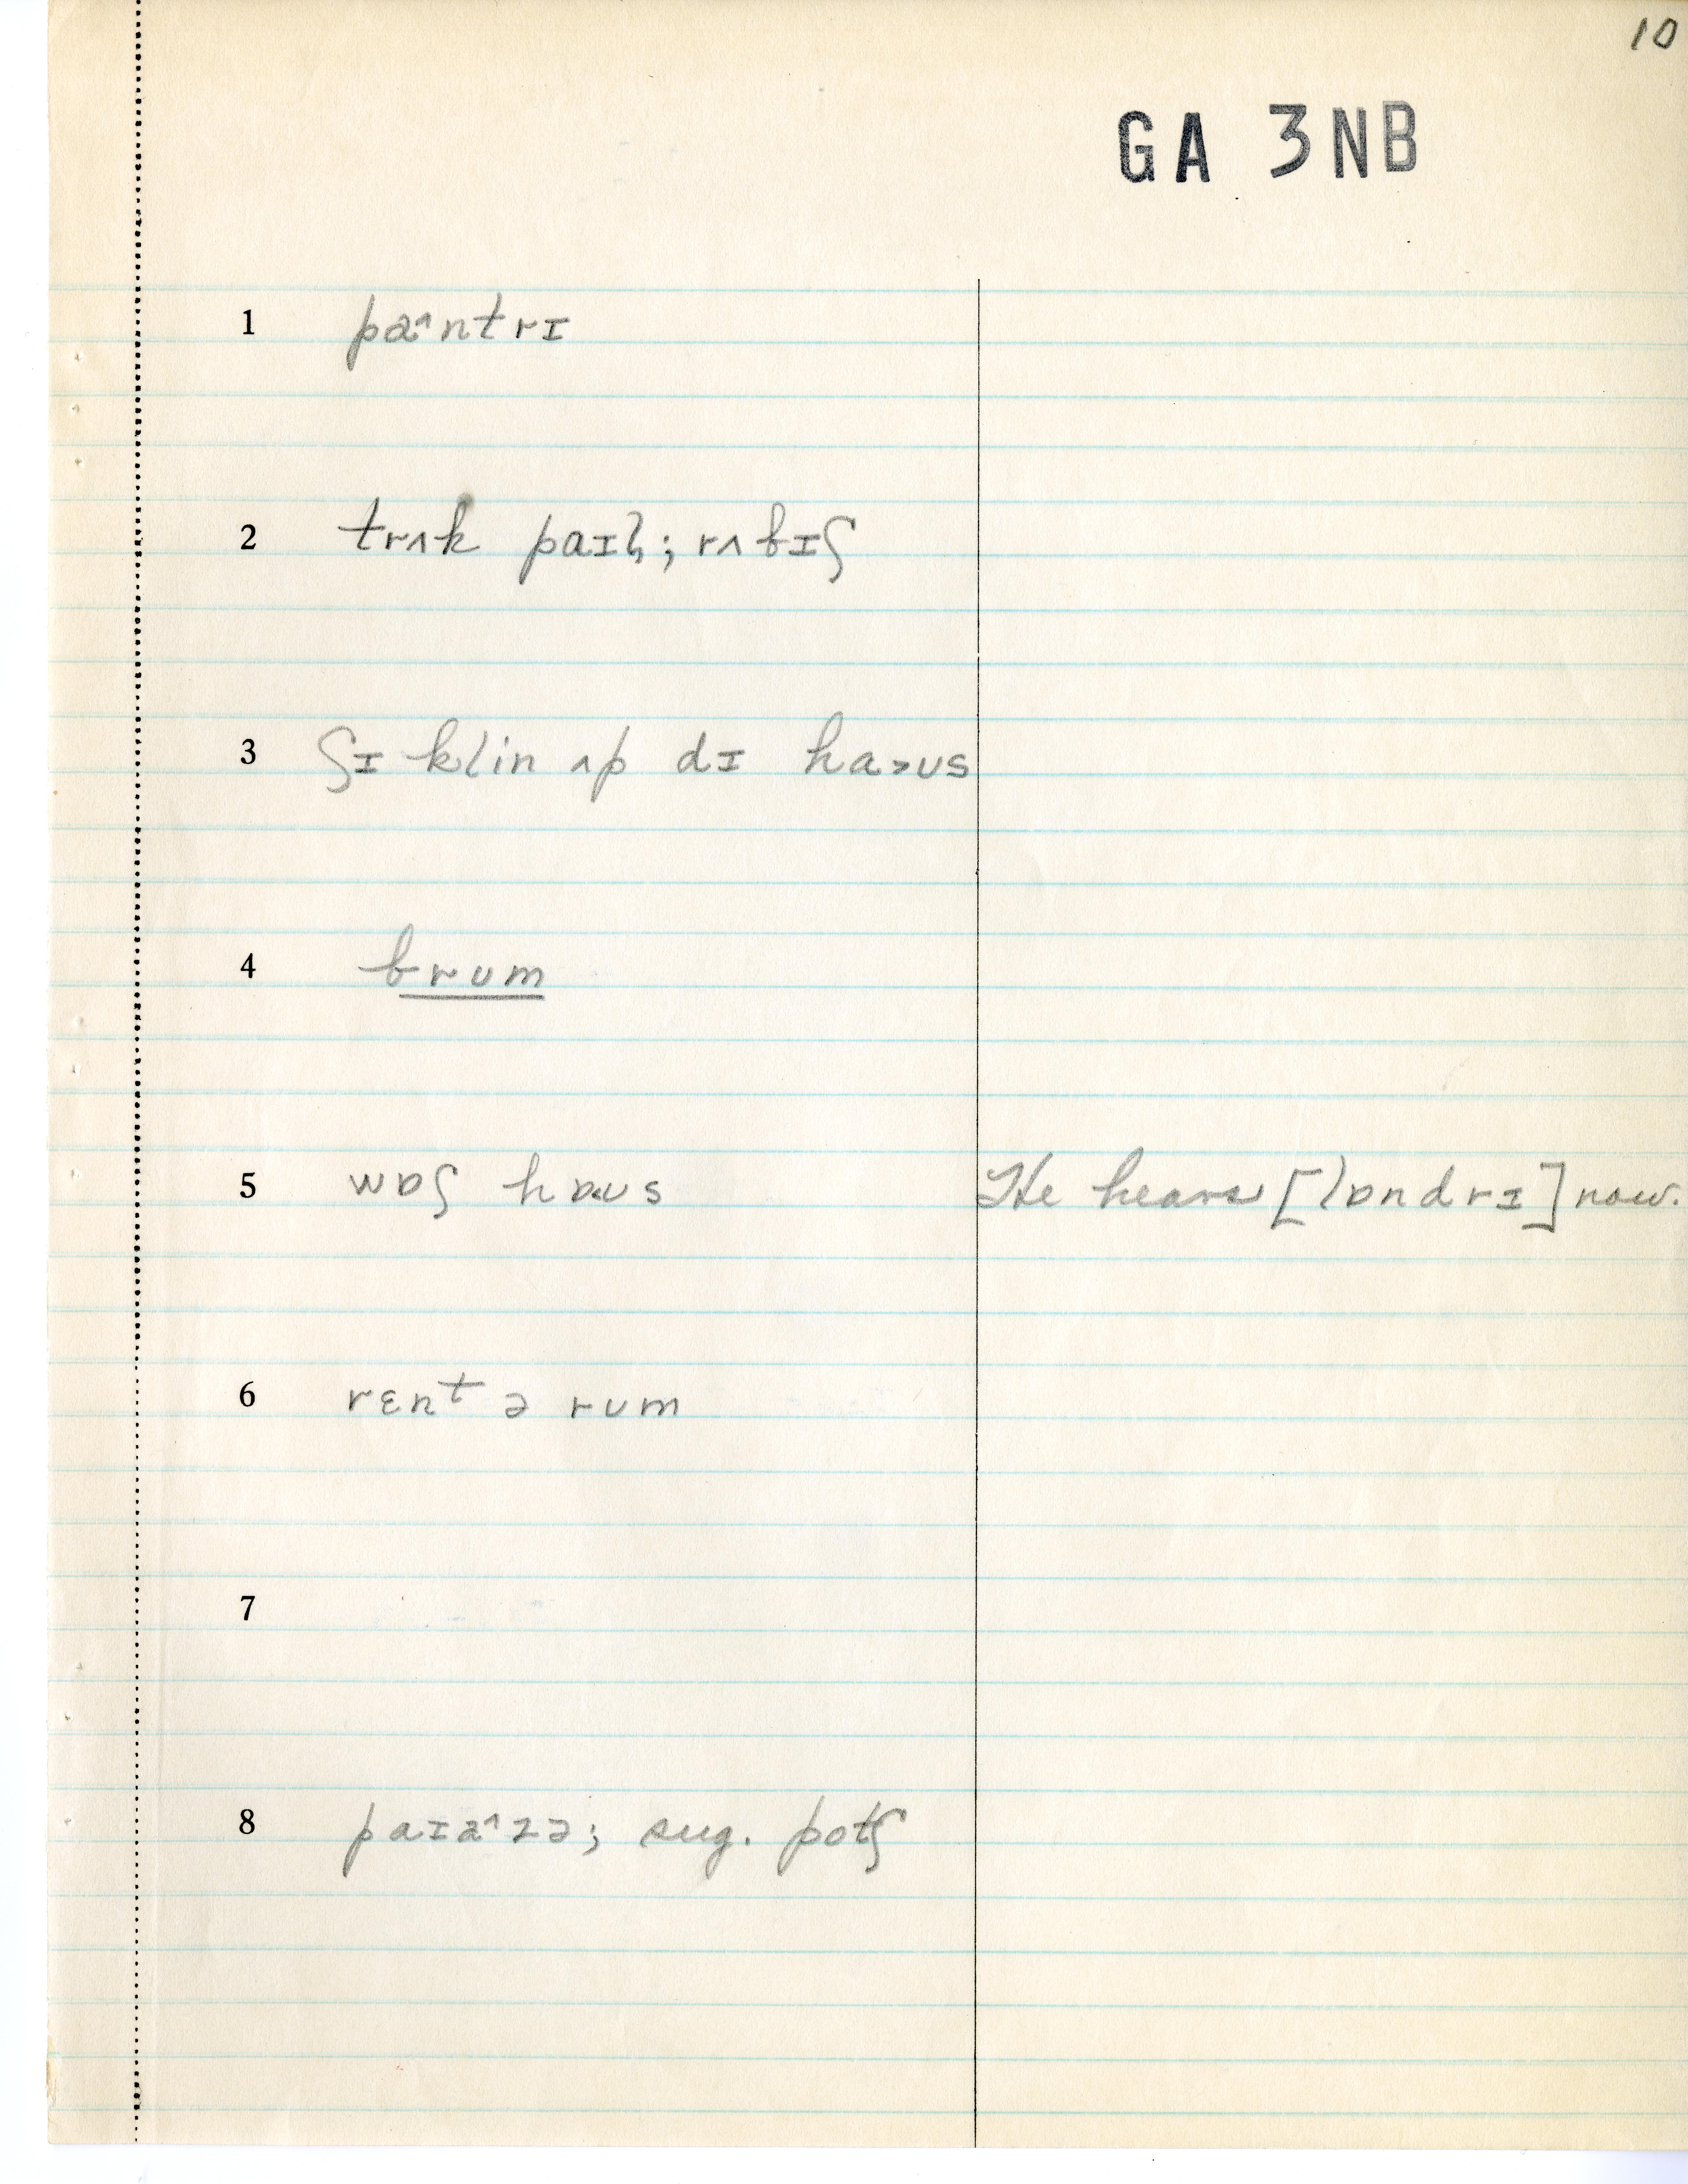 10
GA 3NB
1 pa^ntrɪ
2 trʌk paɪl̡; rʌbɪʃ
3 ʃɪ klin ʌp dɪ ha>ʊs
4 brʊm
5 wɒʃ hɒ<ʊs He hears [lɒndrɪ] now.
6 rɛnt ə rʊm
7
8 paɪa^zə; sug. potʃ